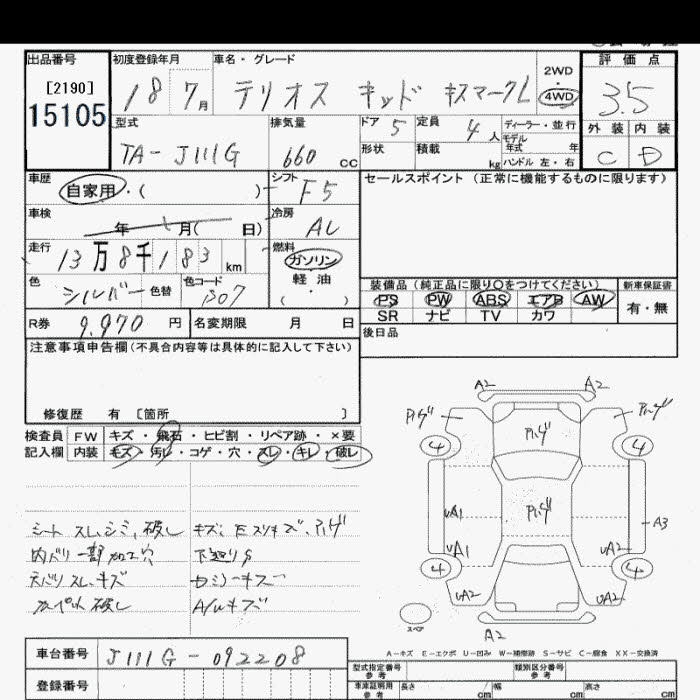 出品番号
[2190]
15105
初度登録年月
18 7月
車名・グレード
テリオス キッド キスマークL
2WD
4WD
評価点
3.5
外装 内装
C D
型式
TA-J111G
排気量
660 cc
ドア 5
定員 4 人
ディーラー・並行
モデル
年式 年
形状
積載 kg
ハンドル 左・右
車歴
自家用・( )
シフト F5
セールスポイント (正常に機能するものに限ります)
車検
年 月( 日)
冷房 AC
走行
13万8千183 km
燃料
ガソリン
軽油
・( )
色
シルバー 色替
色コード
S07
装備品(純正品に限り○をつけてください)
PS PW ABS エアB AW
SR ナビ TV カワ
新車保証書
有・無
R券 9.970 円
名変期限 月 日
後日品
注意事項申告欄(不具合内容等は具体的に記入して下さい)
修復歴 有 [箇所 ]
検査員
記入欄
FW キズ・飛石・ヒビ割・リペア跡・×要
内装 キズ・汚レ・コゲ・穴・スレ・キレ・破レ
シート スレ、シミ、破レ
キズ、Eスリキズ、ハゲ
内バリ一部加工穴
下廻りS
天バリ スレ、キズ
カーペット破レ
A/Wキズ
A2 A2
4 4
UA1 A3
UA1 UA2
4 4
UA2 UA2
スペア
A2
A-キズ E-エクボ U-凹み W-補修跡 S-サビ C-腐食 XX-交換済
車台番号 J111G-092208
登録番号
型式指定番号
参考
類別区分番号
参考
車庫証明用
参考
長さ cm 幅 cm 高さ cm